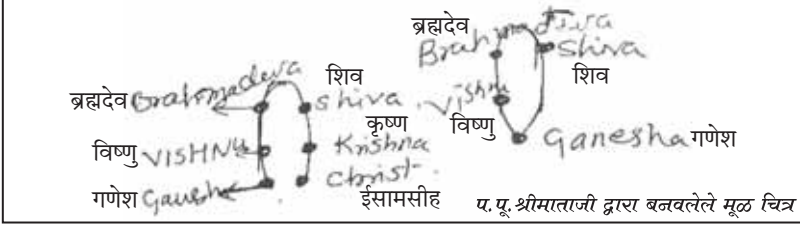 ब्रह्मदेव Brahmadeva
शिव
Shiva
कृष्ण
Krishna
विष्णु VISHNU
गणेश Ganesh
Christ
ईसामसीह
ब्रह्मदेव
Brahmadeva
Shiva
शिव
Vishnu
विष्णु
Ganesha गणेश
प.पू.श्रीमाताजी द्वारा बनवलेले मूळ चित्र